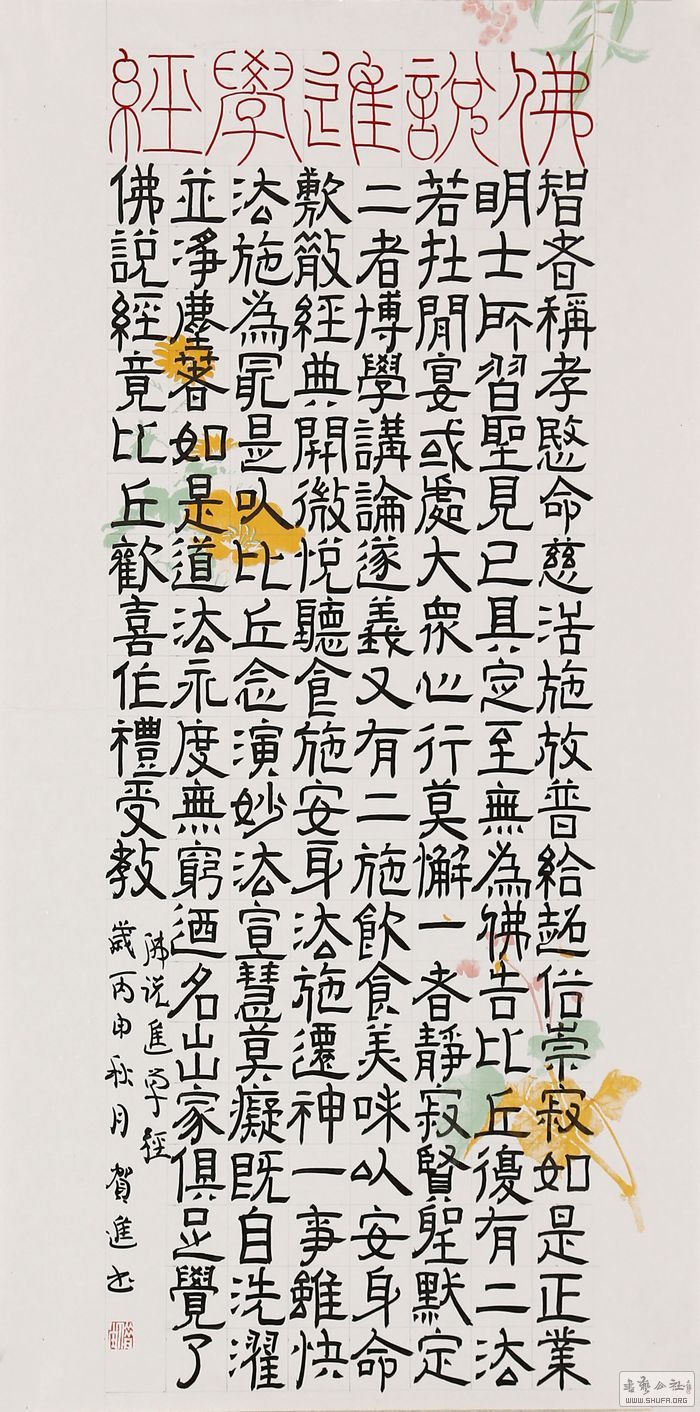 佛說進學經
智者稱孝愍命慈活施放普給超俗崇寂如是正業
明士所習聖見已具定至無為佛告比丘復有二法
若在閒宴或處大眾心行莫懈一者靜寂賢聖默定
二者博學講論遂義又有二施飲食美味以安身命
敷散經典開微悅聽食施安身法施遷神一事雖快
法施為最是以比丘念演妙法宣慧莫癡既自洗濯
並淨塵著如是道法永度無窮迺名出家俱足覺了
佛說經竟比丘歡喜作禮受教
佛说進学經
歲丙申秋月賀進书
書藝公社
WWW.SHUFA.ORG